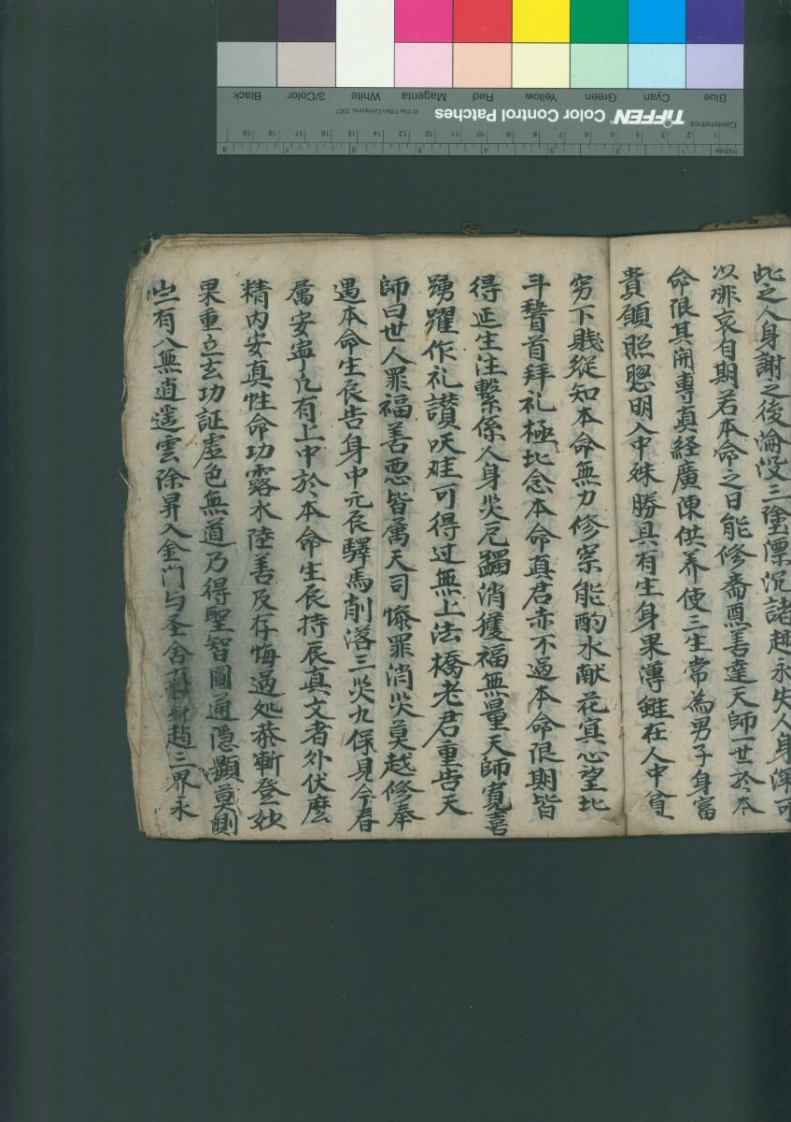 Blue Cyan Green Yellow Red Magenta White 3/Color Black
Centimetres TIFFEN Color Control Patches © The Tiffen Company, 2007
Inches
此之人身謝之後淪没三塗漂沉諸趣永失人身深可
以哀自期若本命之日能修齋善達天師一世於本
命限其開專真経廣陳供养使三生常為男子身富
貴願照聰明入中殊勝具有生身果薄雖在人中貧
穷下賤縱知本命無力修察能酌水献花冥心望北
斗稽首拜礼極比念本命真君赤不過本命限期皆
得延生注繫係人身災厄蠲消獲福無量天師寬喜
踴躍作礼讃哉可得过無上法橋老君重告天
師曰世人罪福善悪皆属天司懺罪消災莫越修奉
遇本命生辰告身中元辰驛馬削落三災九保見今眷
属安寧凢有上中於本命生辰持辰真文者外伏麽
精内安真性命功霑水陸善及存悔過処漸登妙
果重立玄功証虚色無道乃得聖智圓通隠顯莫則
有八無逍遥雲除昇入金门与圣合趙三界永